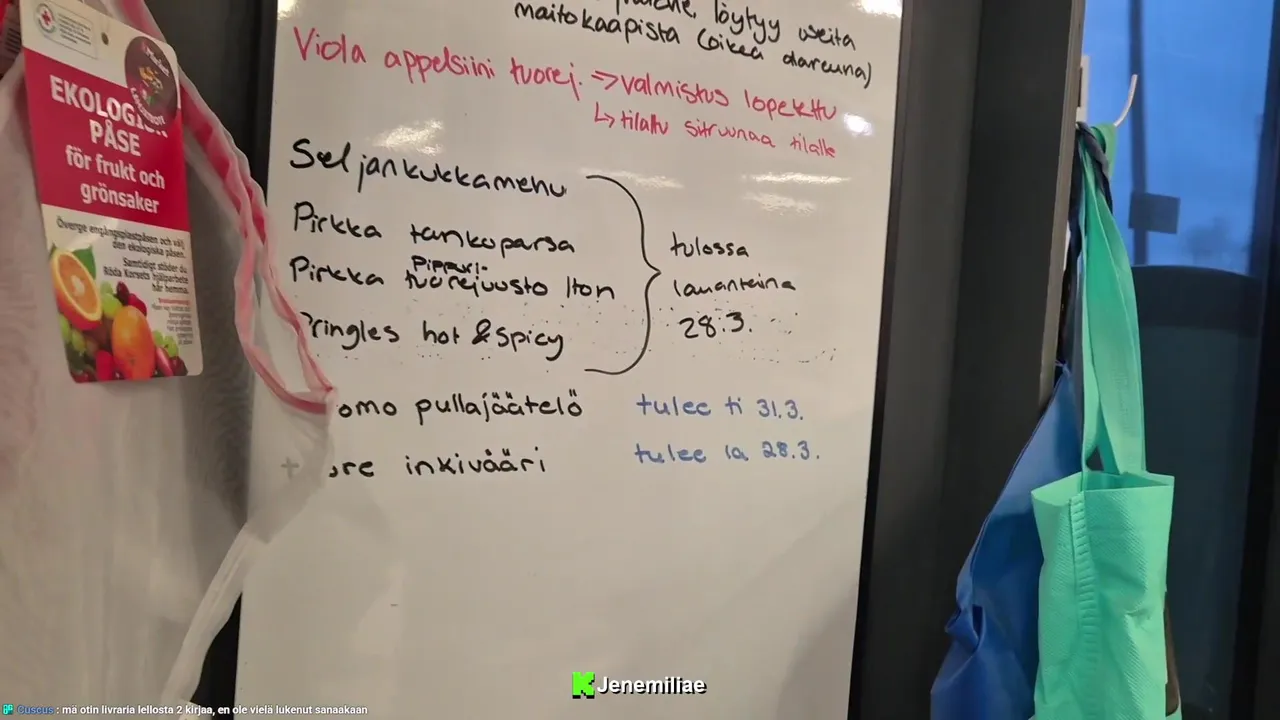 löytyy useita
maitokaapista (oikea alareuna)
Viola appelsiini tuorej. => valmistus lopetettu
↳ tilattu sitruunaa tilalle
Seljankukkamehu
Pirkka tankoparsa
Pirkka Pippuri-tuorejuusto lton
Pringles hot & spicy
tulossa
lauantaina
28.3.
omo pullajäätelö tulee ti 31.3.
inkivääri tulee la 28.3.
EKOLOG
PÅSE
för frukt och
grönsaker
Överge engångsplastpåsen och välj
den ekologiska påsen.
Samtidigt stöder du
Röda Korsets hjälparbete
här hemma.
Jenemiliae
Cuscus : mä otin livraria lellosta 2 kirjaa, en ole vielä lukenut sanaakaan